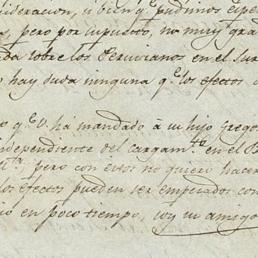 sideracion, u bien q.e pudimos espe
s, pero por supuesto, no muy gra
da sobre los Peruvianos en el sur
o hay duda ninguna q.e los efectos d
o q.e V. há mandado á su hijo Grego
independiente del cargam.to en el B
pero con estos no quiero hacer
los efectos pueden ser empeñados con
cio en poco tiempo, soy su amigo